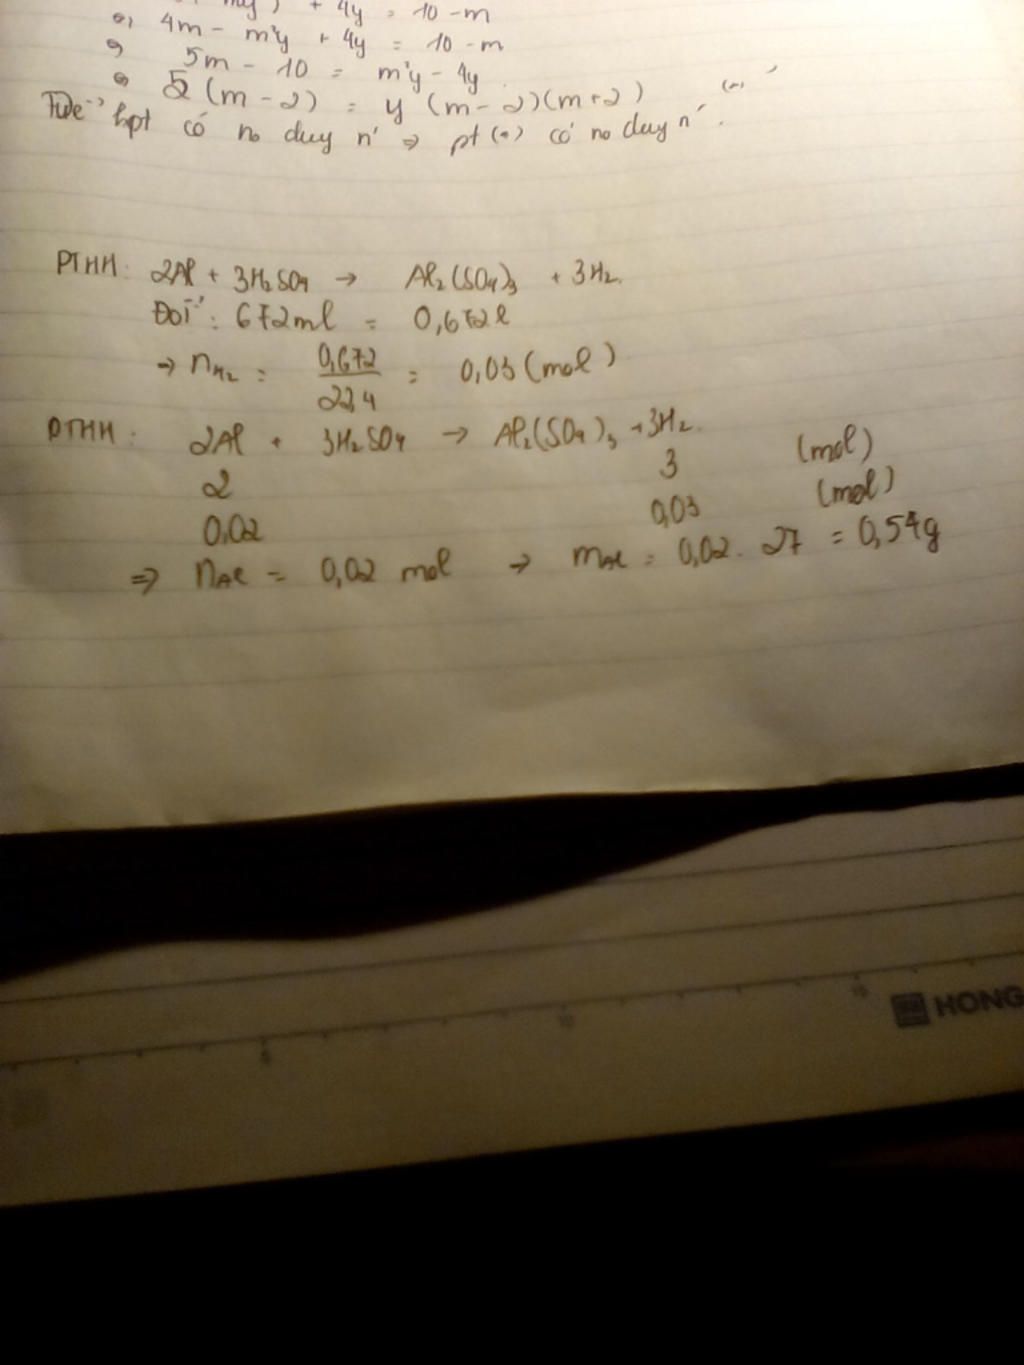 my) + 4y = 10 - m
4m - m²y + 4y = 10 - m
5m - 10 = m²y - 4y
5 (m - 2) = y (m - 2)(m + 2) (*)
Để hpt có no duy n' ⇒ pt (*) có no duy n'.
PTHH: 2Al + 3H₂SO₄ → Al₂(SO₄)₃ + 3H₂.
Đổi: 672ml = 0,672l
→ nH₂ = 0,672/22,4 = 0,03 (mol)
PTHH: 2Al + 3H₂SO₄ → Al₂(SO₄)₃ + 3H₂.
2 3 (mol)
0,02 0,03 (mol)
⇒ nAl = 0,02 mol → mAl = 0,02. 27 = 0,54g
5 10 15
HONG